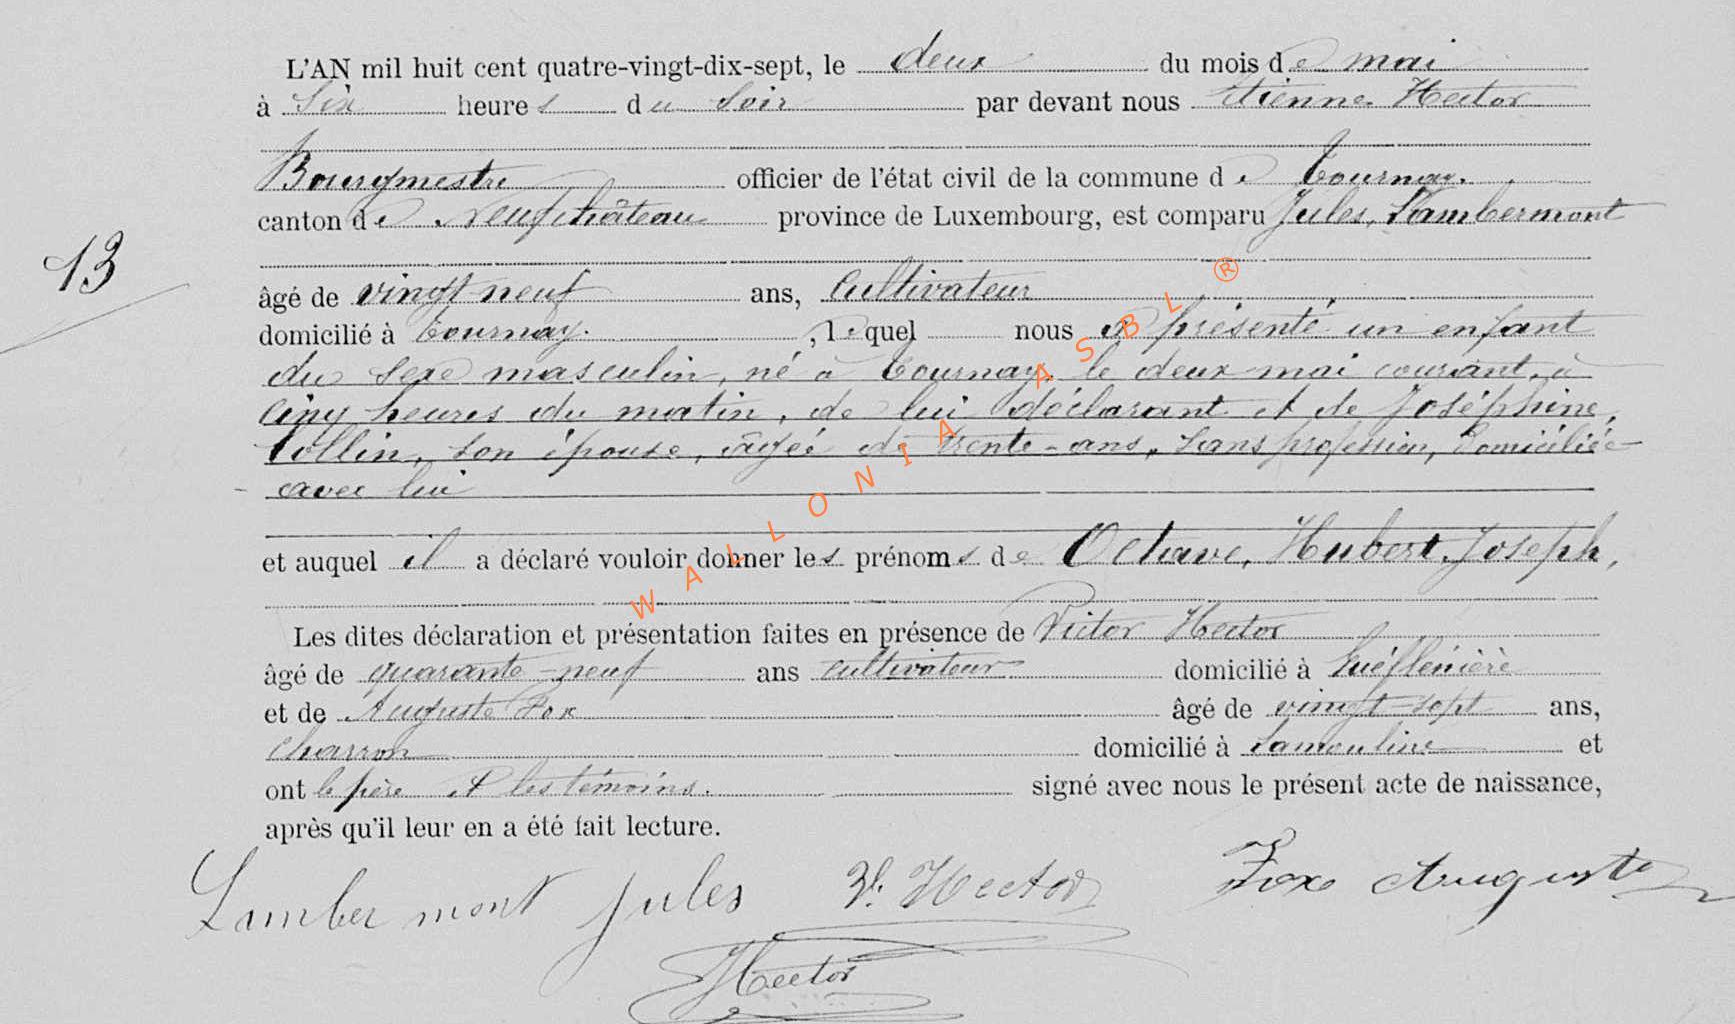 L'AN mil huit cent quatre-vingt-dix-sept, le deux du mois de mai
à six heures du soir par devant nous Etienne Hector
Bourgmestre officier de l'état civil de la commune de Tournay.
canton de Neufchâteau province de Luxembourg, est comparu Jules, Lambermont
13
âgé de vingt neuf ans, cultivateur
domicilié à Tournay. , lequel nous a présenté un enfant
du sexe masculin, né à Tournay, le deux mai courant, à
cinq heures du matin, de lui déclarant et de Joséphine,
Collin, son épouse, âgée de trente-ans, sans profession, domiciliée
avec lui
et auquel il a déclaré vouloir donner les prénoms de Octave, Hubert, Joseph,
Les dites déclaration et présentation faites en présence de Victor Hector
âgé de quarante-neuf ans cultivateur domicilié à
et de Auguste Fox âgé de vingt-sept ans,
charron domicilié à Lamouline et
ont le père et les témoins. signé avec nous le présent acte de naissance,
après qu'il leur en a été fait lecture.
Lambermont Jules V. Hector Fox Auguste
Hector
WALLONIA ASBL ®